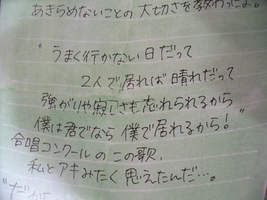 あきらめないことの大切さを教わったよ。
"うまく行かない日だって
2人で居れば晴れだって
強がりや寂しさも忘れられるから
僕は君でなら僕で居れるから！"
合唱コンクールのこの歌、
私とアキみたく思えたんだ…。
"だから